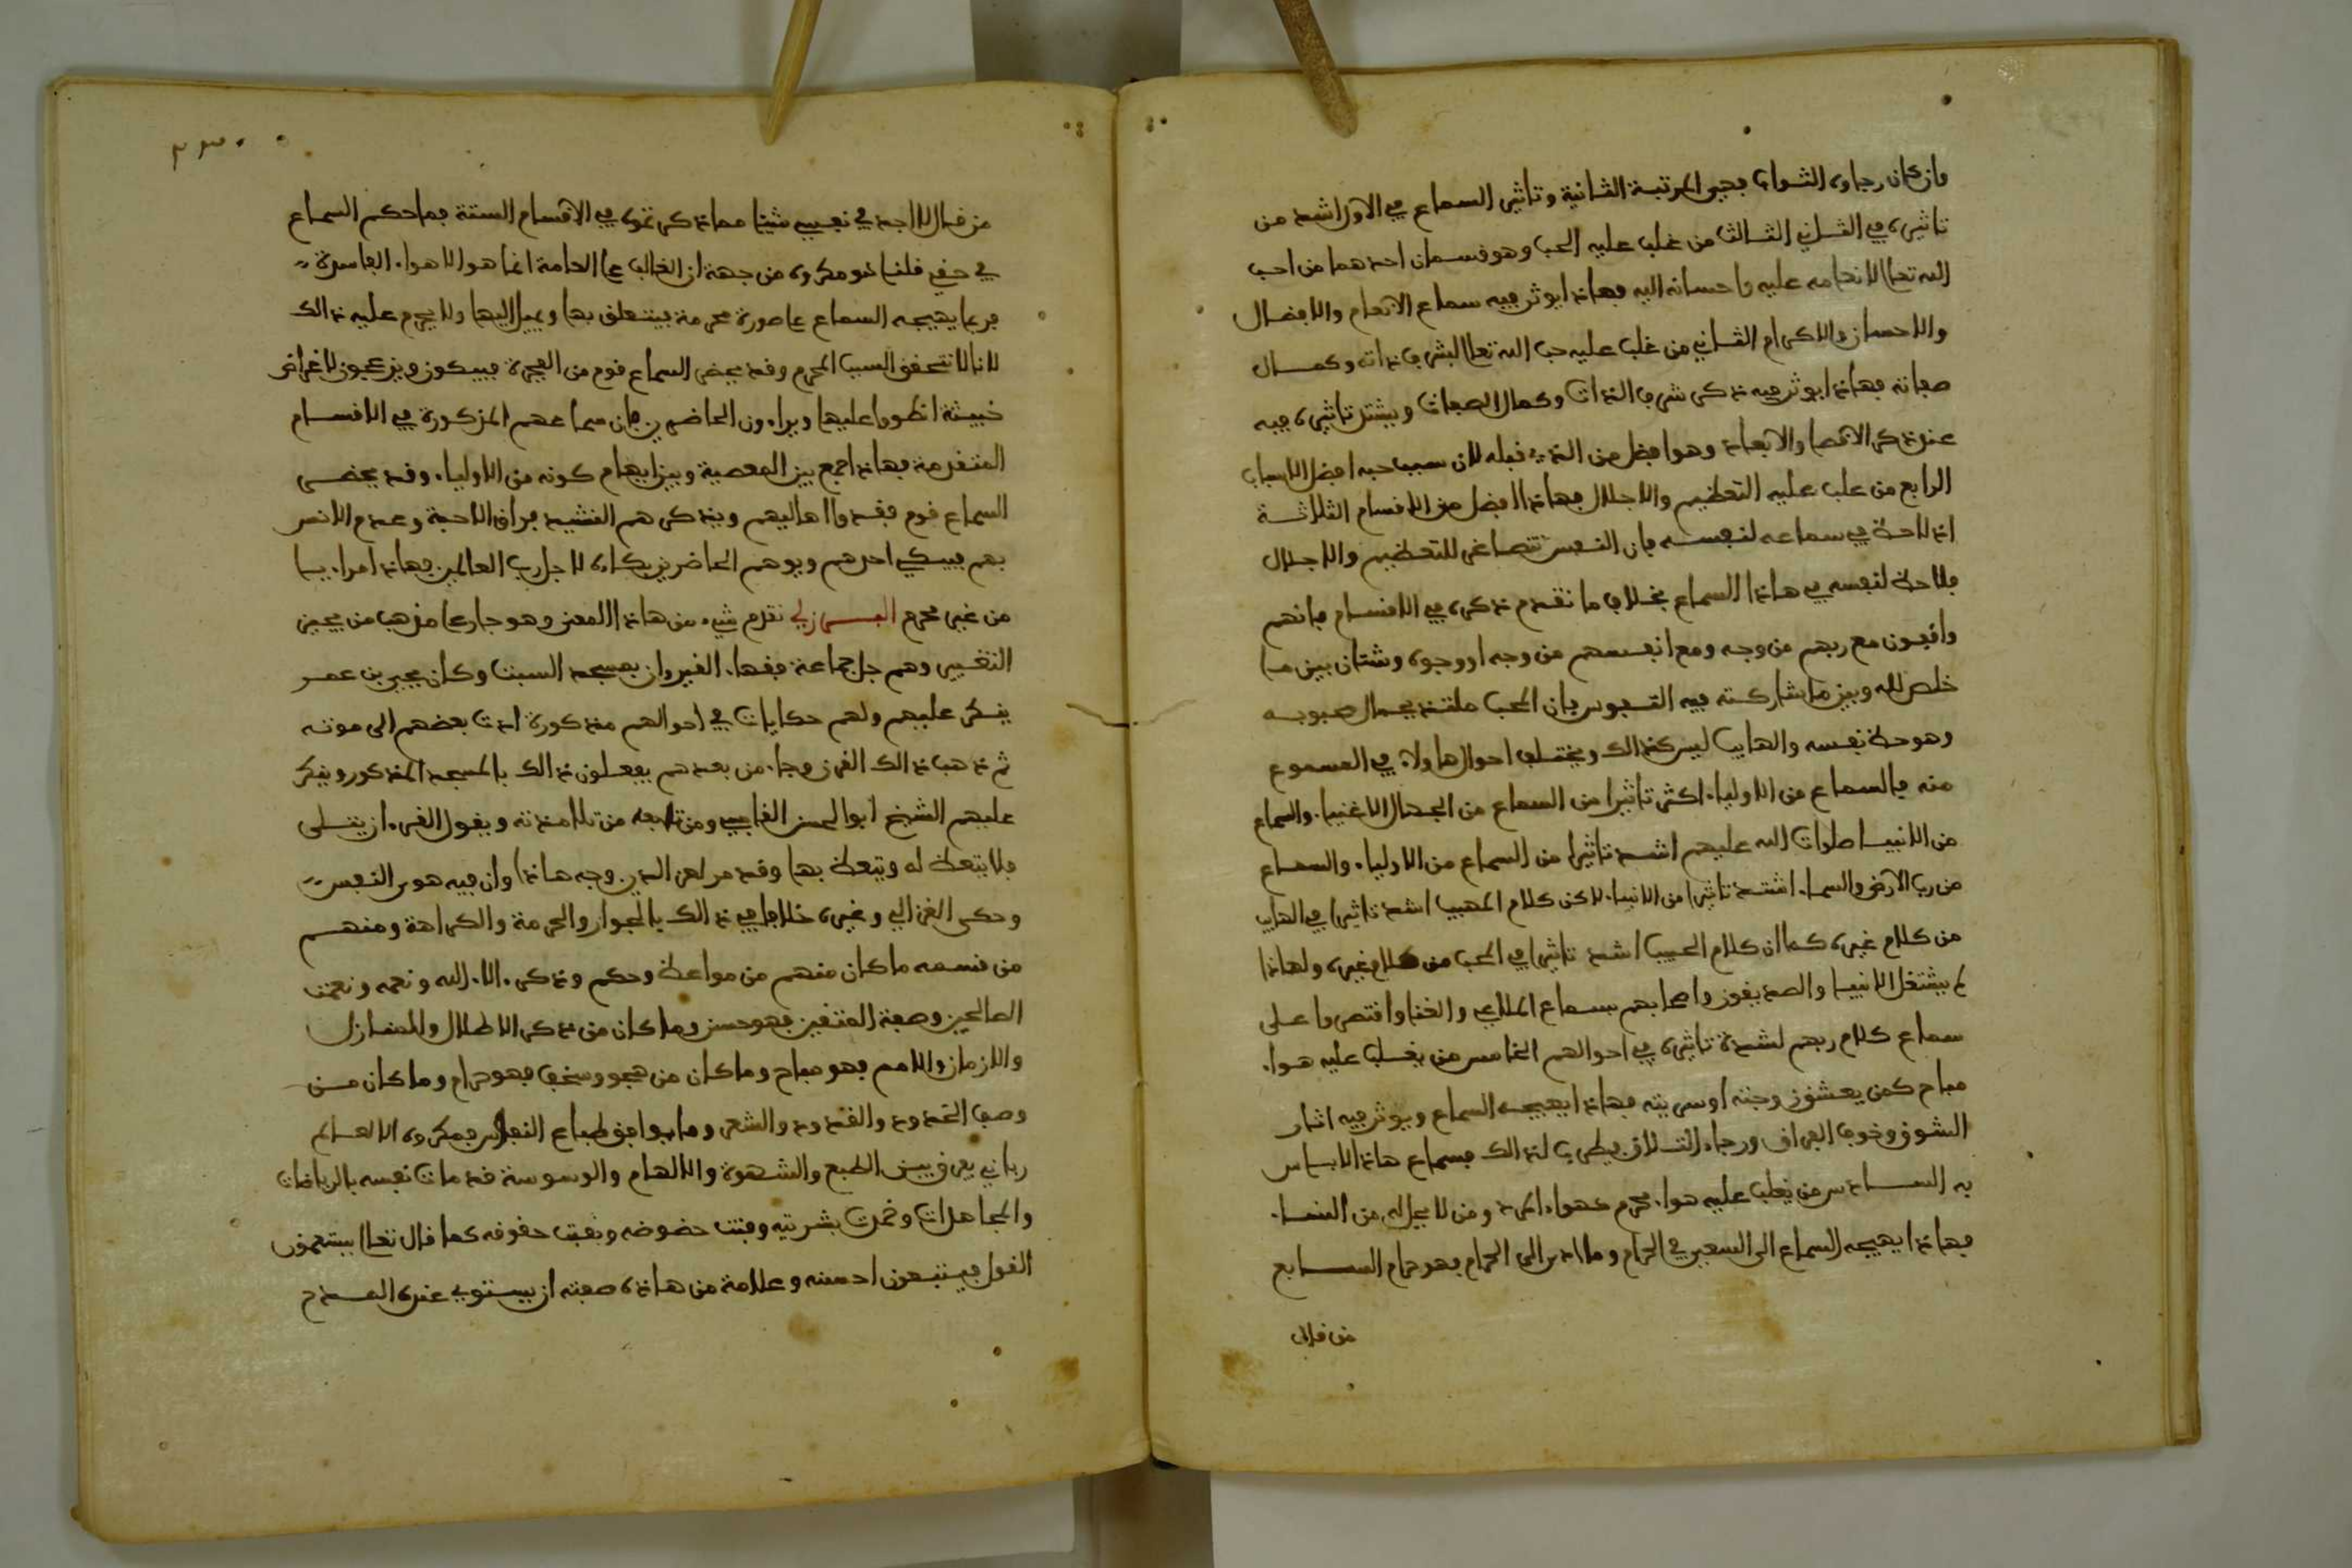 وان كان رجاوه الثواب فهي المرتبة الثانية وتاثير السماع في الاول اشد من
تاثيره في الثاني الثالث من غلب عليه الحب وهو قسمان احدهما من احب
الله تعالى لانعامه عليه واحسانه اليه فهاذا يوثر فيه سماع الانعام والافضال
والاحسان والاكرام الثاني من غلب عليه حب الله تعالى لشرف ذاته وكمال
صفاته فهاذا يوثر فيه ذكر شرف الذات وكمال الصفات ويشتد تاثيره فيه
عند ذكر الاقصا والابعاد وهو افضل من الذي قبله لان سبب حبه افضل الاسباب
الرابع من غلب عليه التعظيم والاجلال فهاذا افضل من الاقسام الثلاثة
اذ لا حظ في سماعه لنفسه فان النفس تتصاغر للتعظيم والاجلال
فلا حظ لنفسه في هاذا السماع بخلاف ما تقدم ذكره في الاقسام فانهم
واقفون مع ربهم من وجه ومع انفسهم من وجه او وجوه وشتان بين ما
خلص لله وبين ما شاركته فيه النفوس فان المحب ملتذ بجمال محبوبه
وهو حظ نفسه والهايب ليس كذالك ويختلف احوال هاولاء في المسموع
منه فالسماع من الاولياء اكثر تاثيرا من السماع من الجهال الاغنيا والسماع
من الانبيا صلوات الله عليهم اشد تاثيرا من السماع من الاولياء والسماع
من رب الارض والسماء اشتد تاثيرا من الانبيا لاكن كلام المهيب اشد تاثيرا في الهايب
من كلام غيره كما ان كلام الحبيب اشد تاثيرا في المحب من كلام غيره ولهاذا
لم يشتغل الانبيا والصديقون واصحابهم بسماع الملاهي والغنا واقتصروا على
سماع كلام ربهم لشدة تاثيره في احوالهم الخامس من يغلب عليه هواء
مباح كمن يعشق زوجته او سريته فهاذا يهيجه السماع ويوثر فيه اثار
الشوق وخوف الفراق ورجاء التلاق فيطرب لذالك فسماع هاذا لا باس
به السادس من يغلب عليه هواء محرم كهواء المرد ومن لا يحل له من النساء
فهاذا يهيجه السماع الى السعي في الحرام وما ادى الى الحرام فهو حرام السابع
من قال
٢٣٠
من قال لا اجد في نفسي شيئا مما ذكرتموه في الاقسام الستة فما حكم السماع
في حقي قلنا هو مكروه من جهة ان الغالب على العامة انما هو الاهواء الفاسدة
فربما يهيجه السماع على صورة محرمة فيتعلق بها ويميل اليها ولا يحرم عليه ذالك
لانا لا نتحقق السبب المحرم وقد يحضر السماع قوم من الفجرة فيبكون وينزعجون لاغراض
خبيثة انطووا عليها ويراءون الحاضرين بان سماعهم المذكورة في الاقسام
المتقدمة فهاذا جمع بين المعصية وبين ايهام كونه من الاولياء وقد يحضر
السماع قوم فقدوا اهاليهم ويذكرهم النشيد فراق الاحبة وعدم الانس
بهم فيبكي احدهم ويوهم الحاضرين بكاءه لاجل رب العالمين فهاذا مراء بما
من غير محرم البرزلي تقدم شيء من هاذا المعنى وهو جار على مذهب من يجيز
التغبير وهم جل جماعة فقهاء القيروان بمسجد السبت وكان يحيى بن عمر
ينكر عليهم ولهم حكايات في احوالهم مذكورة ادت بعضهم الى موته
ثم ذهب ذالك القرن وجاء من بعدهم يفعلون ذالك بالمسجد المذكور وينكر
عليهم الشيخ ابو الحسن القابسي ومن تابعه من تلامذته ويقول القرءان يتلى
فلا يتعظ له ويتعظ بها وقد مر لعز الدين وجه هاذا وان فيه هوى النفس
وحكى الغزالي وغيره خلافا في ذالك بالجواز والحرمة والكراهة ومنهم
من قسمه ما كان منهم من مواعظ وحكم وذكر الاء الله ونعمه ونعت
الصالحين وصفة المتقين فهو حسن وما كان من ذكر الاطلال والمنازل
والازمان والامم فهو مباح وما كان من هجو وسخف فهو حرام وما كان من
وصف الخدود والقدود والشعر وما يوافق طباع النفوس فمكروه الا لعالم
رباني يعرف بين الطبع والشهوة والالهام والوسوسة قد مات نفسه بالرياضات
والمجاهدات وخمدت بشريته وفنت حضوضه وبقيت حقوقه كما قال تعالى يستمعون
القول فيتبعون احسنه وعلامة من هاذه صفته ان يستوي عنده المدح